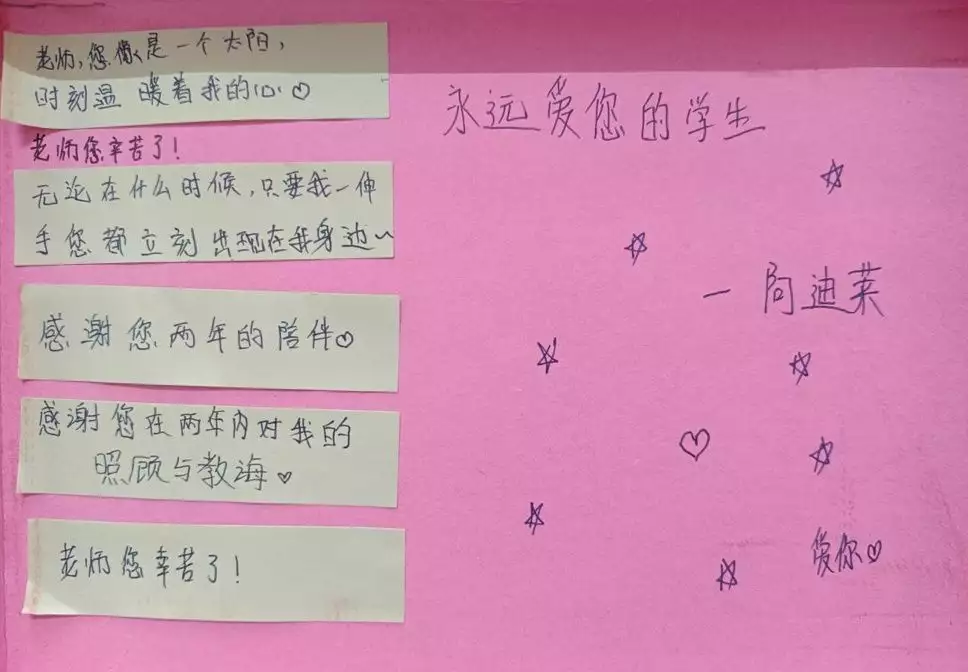 老师,您像是一个太阳,
时刻温暖着我的心♡
老师您辛苦了!
无论在什么时候,只要我一伸
手您都立刻出现在我身边~
感谢您两年的陪伴♡
感谢您在两年内对我的
照顾与教海♡
老师您幸苦了!
永远爱您的学生
一 阿迪莱
爱你♡